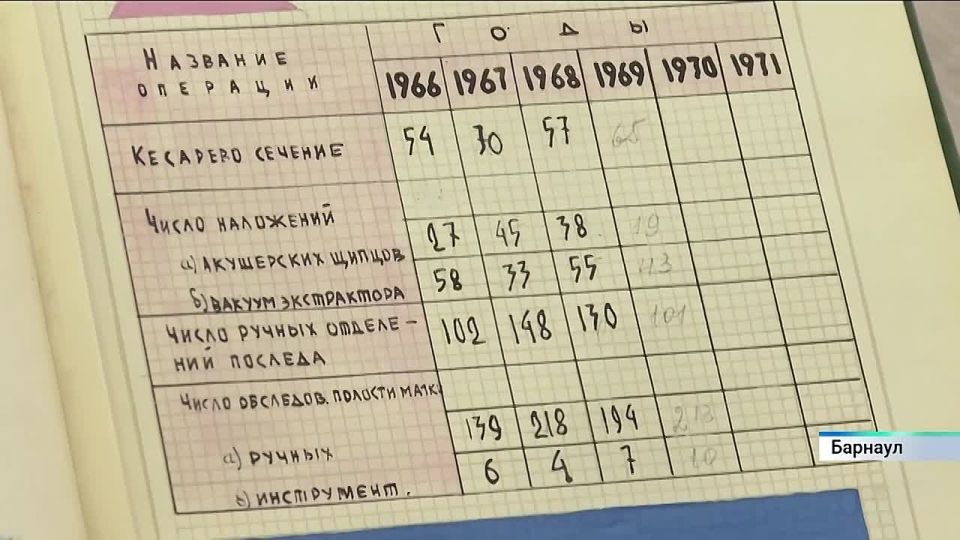 Годы
Название
операции
1966 1967 1968 1969 1970 1971
Кесарево сечение 54 70 57 65
Число наложений
а) акушерских щипцов 27 45 38 19
б) вакуум экстрактора 58 33 55
Число ручных отделе-
ний последа 102 148 130 101
Число обследов. полости матк.
а) ручных 139 218 194
в) инструмент. 6 4 7 10
Барнаул